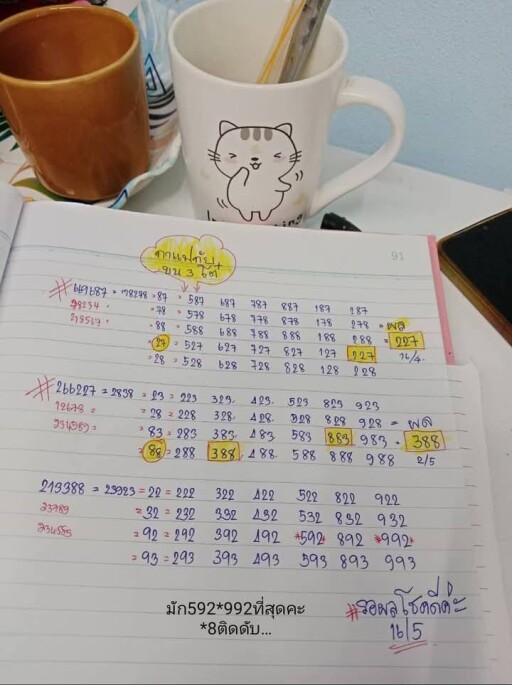 91
กาแฟถ้วย
บน 3 ตัว
#669687 = 78278 = 87 = 587 687 787 887 187 287
= 78 = 578 678 778 878 178 278 = ผล
= 88 = 588 688 788 888 188 288 = 227
= 27 = 527 627 727 827 127 227 16/4
= 28 = 528 628 728 828 128 228
#266227 = 2838 = 23 = 223 323 423 523 823 923
12678 = = 28 = 228 328 428 528 828 928 = ผล
= 83 = 283 383 483 583 883 983 = 388
= 88 = 288 388 488 588 888 988 2/5
213388 = 23923 = 22 = 222 322 422 522 822 922
23789 = 32 = 232 332 432 532 832 932
= 92 = 292 392 492 *592* 892 *992*
= 93 = 293 393 493 593 893 993
#รอผลโชคดีค่ะ
16/5
มัก592*992ที่สุดคะ
*8ติดดับ...